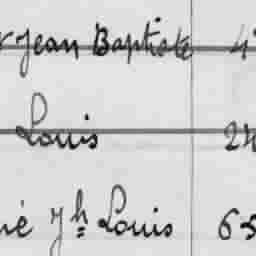 Jean Baptiste 4
Louis 24
né Jh Louis 65